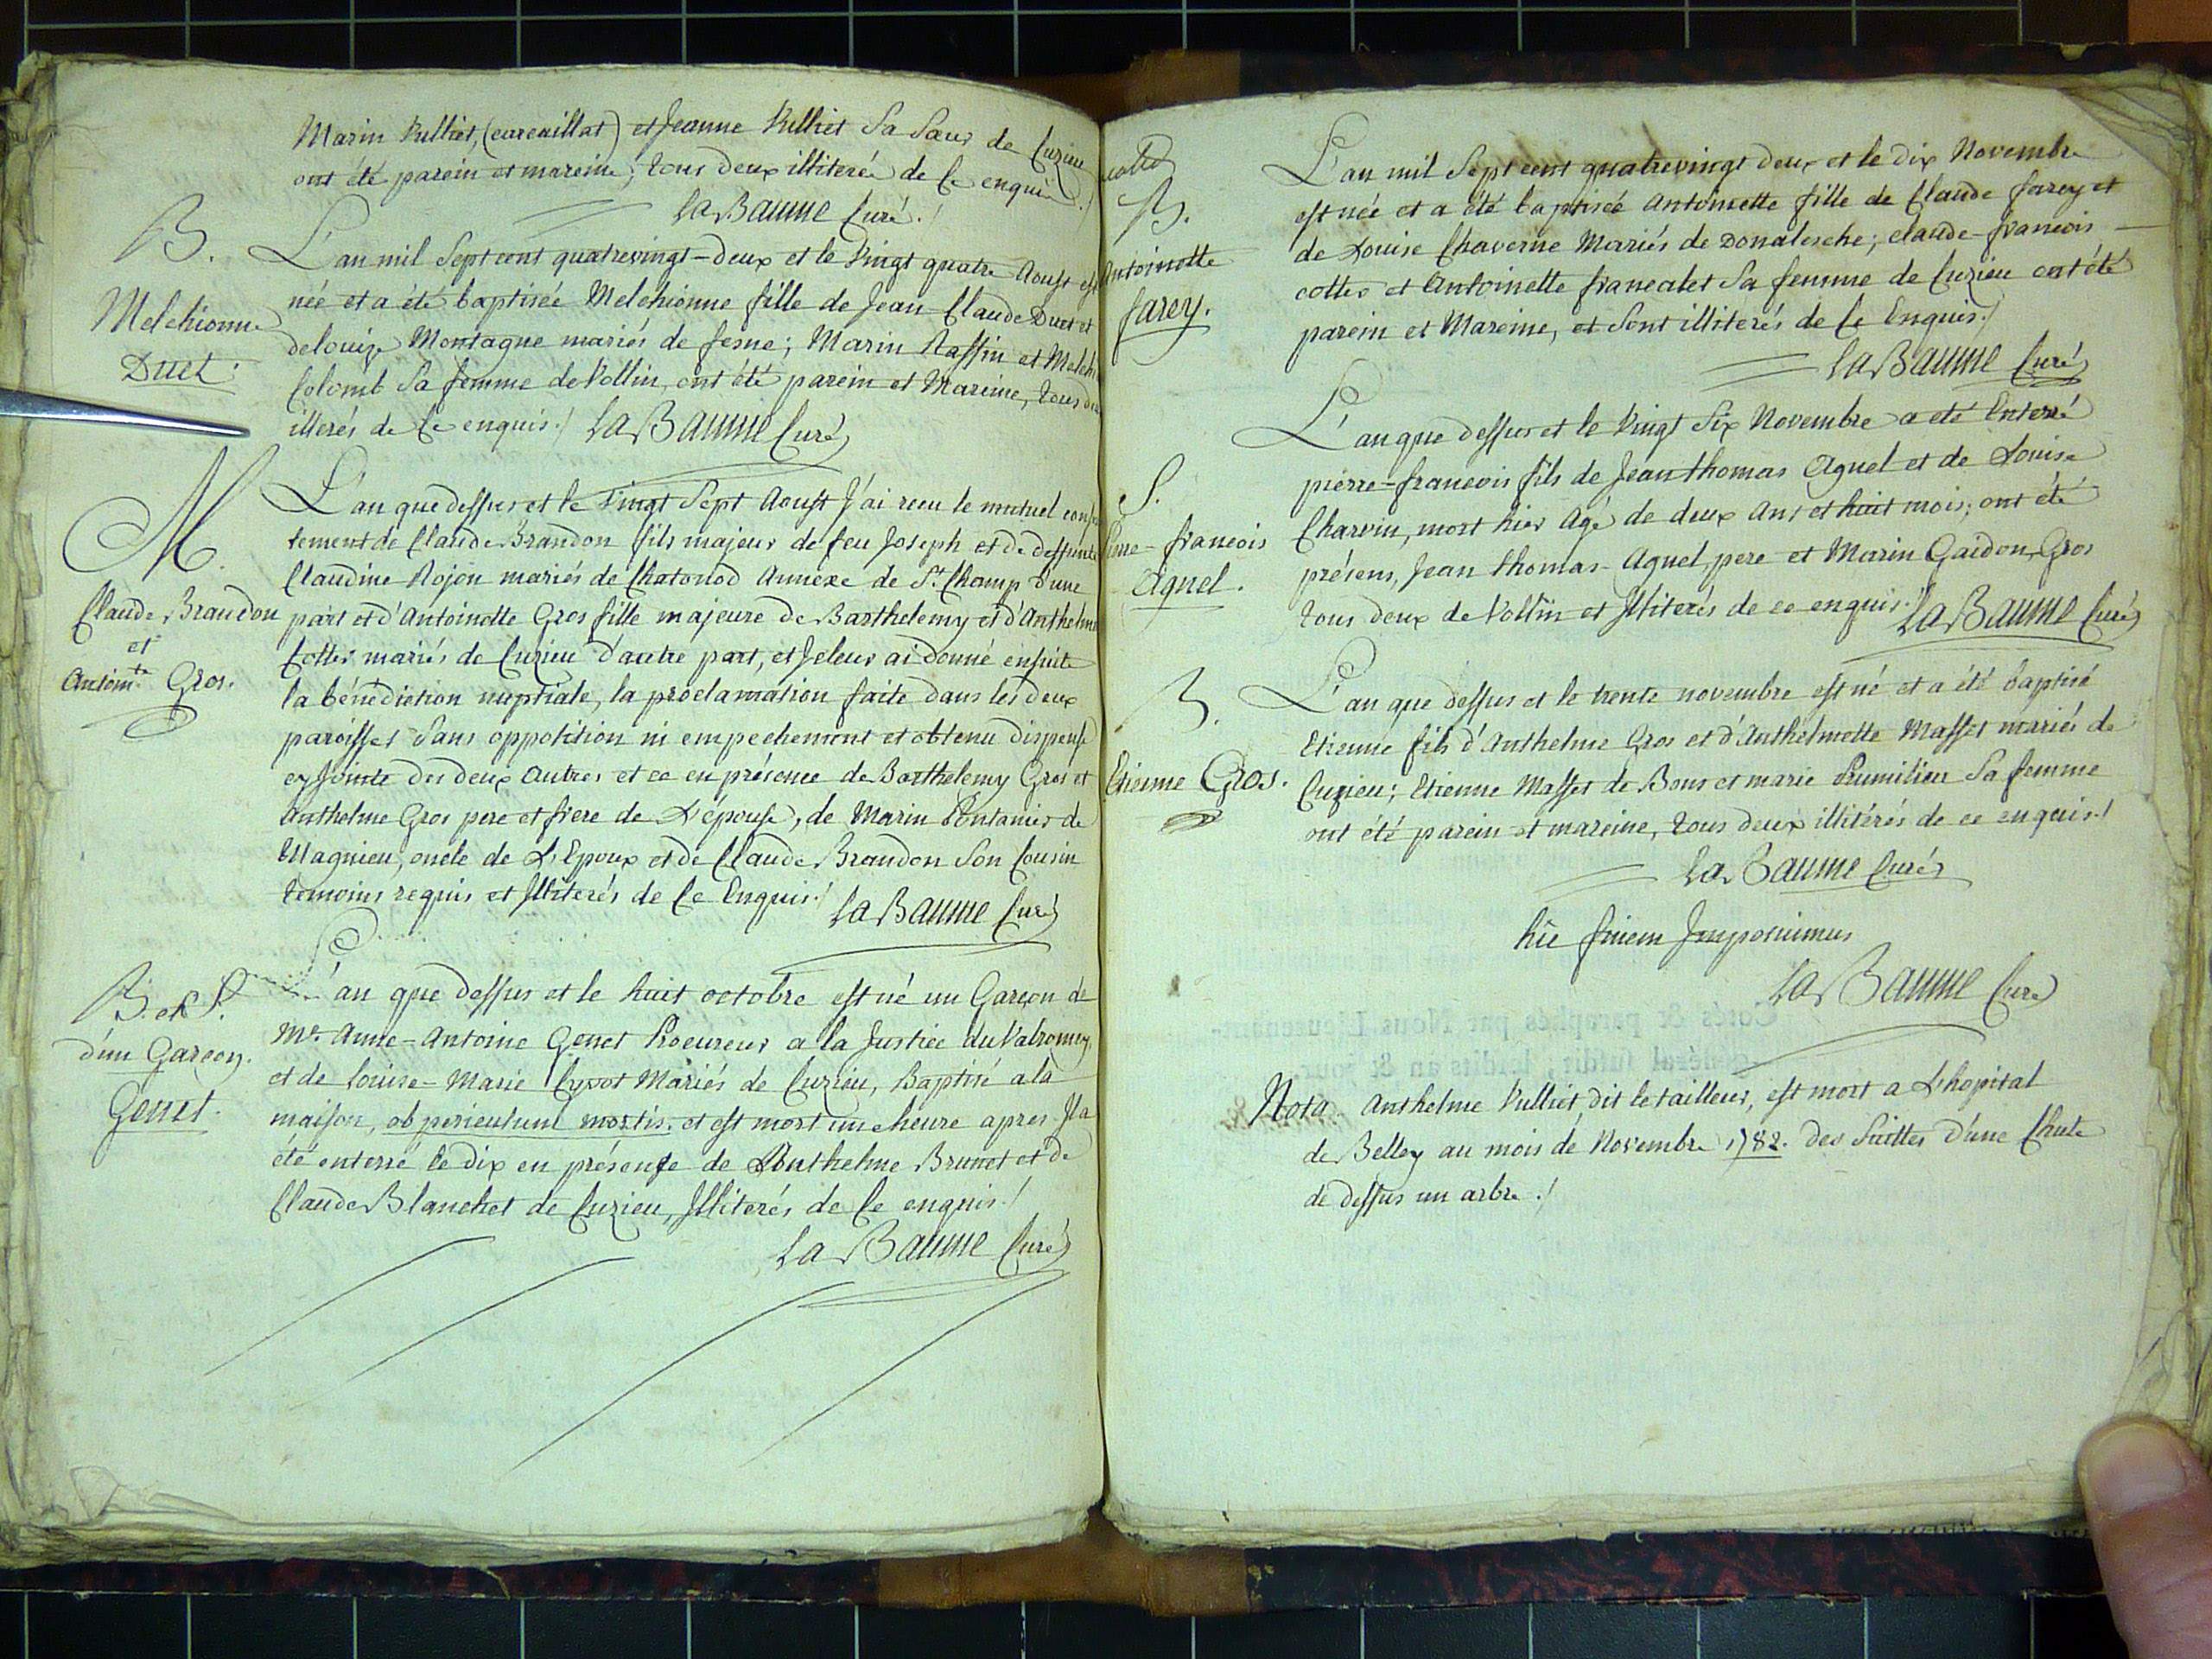 Marin Vulliet, (curcaillat) et Jeanne Vulliet Sa Sœur de Cuzieu
ont été parein et mareine; tous deux illiterés de Ce enquis./
La Baume Curé./
B.
Melchionne
Duet.
L'an mil Sept cent quatrevingt-deux et le Vingt quatre Aoust est
née et a été baptisée Melchionne fille de Jean Claude Duet et
de louize Montagne mariés de fesne; Marin Raffin et Melchi
Colomb Sa femme de Vollin, ont été parein et Mareine, tous deux
illerés de Ce enquis./ La Baume Curé
M.
Claude Brandon
et
Antointe Gros.
L'an que dessus et le Vingt Sept Aoust J'ai recu le mutuel consen
tement de Claude Brandon fils majeur de feu Joseph et de deffunte
Claudine Rojon mariés de Chatonod Annexe de St. Champ d'une
part et d'Antoinette Gros fille majeure de Barthelemy et d'Anthelme
Cotter mariés de Cuzieu d'autre part, et Je leur ai donné ensuite
la bénédiction nuptiale, la proclamation faite dans les deux
paroisses Sans opposition ni empechement et obtenu dispense
cy Jointe des deux Autres et ce en présence de Barthelemy Gros et
Anthelme Gros pere et frere de L'épouse, de Marin Pontanier de
Magnieu, oncle de L'Epoux et de Claude Brandon Son Cousin
temoins requis et Illiterés de Ce Enquis./ La Baume Curé
B. et S.
d'un Garcon.
Genet.
L'an que dessus et le huit octobre est né un Garcon de
Mr. Anne-Antoine Genet Procureur a la Justice du Valromey,
et de louise-Marie Cyvot Mariés de Cuzieu, Baptisé a la
maison, ob periculum mortis. et est mort une heure apres Il a
été enterré le dix en présence de Anthelme Brunet et de
Claude Blanchet de Cuzieu, Illiterés de Ce enquis./
La Baume Curé
B.
Antoinette
farey.
L'an mil Sept cent quatrevingt deux et le dix Novembre
est née et a été baptisée Antoinette fille de Claude farey et
de Louise Chaverne Mariés de Donalesche; claude-francois
cotter et Antoinette francalet Sa femme de Cuzieu ont été
parein et Mareine, et Sont illiterés de Ce Enquis./
La Baume Curé
S.
Pierre-francois
Agnel.
L'an que dessus et le Vingt Six Novembre a été Enterré
pierre-francois fils de Jean thomas Agnel et de Louise
Charvin, mort hier Agé de deux Ans et huit mois; ont été
présens, Jean thomas Agnel, pere et Marin Gardon, Gros
tous deux de Vollin et Illiterés de ce enquis./ La Baume Curé
B.
Etienne Gros.
L'an que dessus et le trente novembre est né et a été baptisé
Etienne fils d'Anthelme Gros et d'Anthelmette Masset mariés de
Cuzieu; Etienne Masset de Bons et marie Prumilieu Sa femme
ont été parein et mareine, tous deux illitérés de ce enquis./
La Baume Curé
hic finem Imponimus
La Baume Curé
Nota Anthelme Vulliet, dit le tailleur, est mort a L'hopital
de Belley au mois de Novembre 1782. des Suittes d'une Chute
de dessus un arbre./